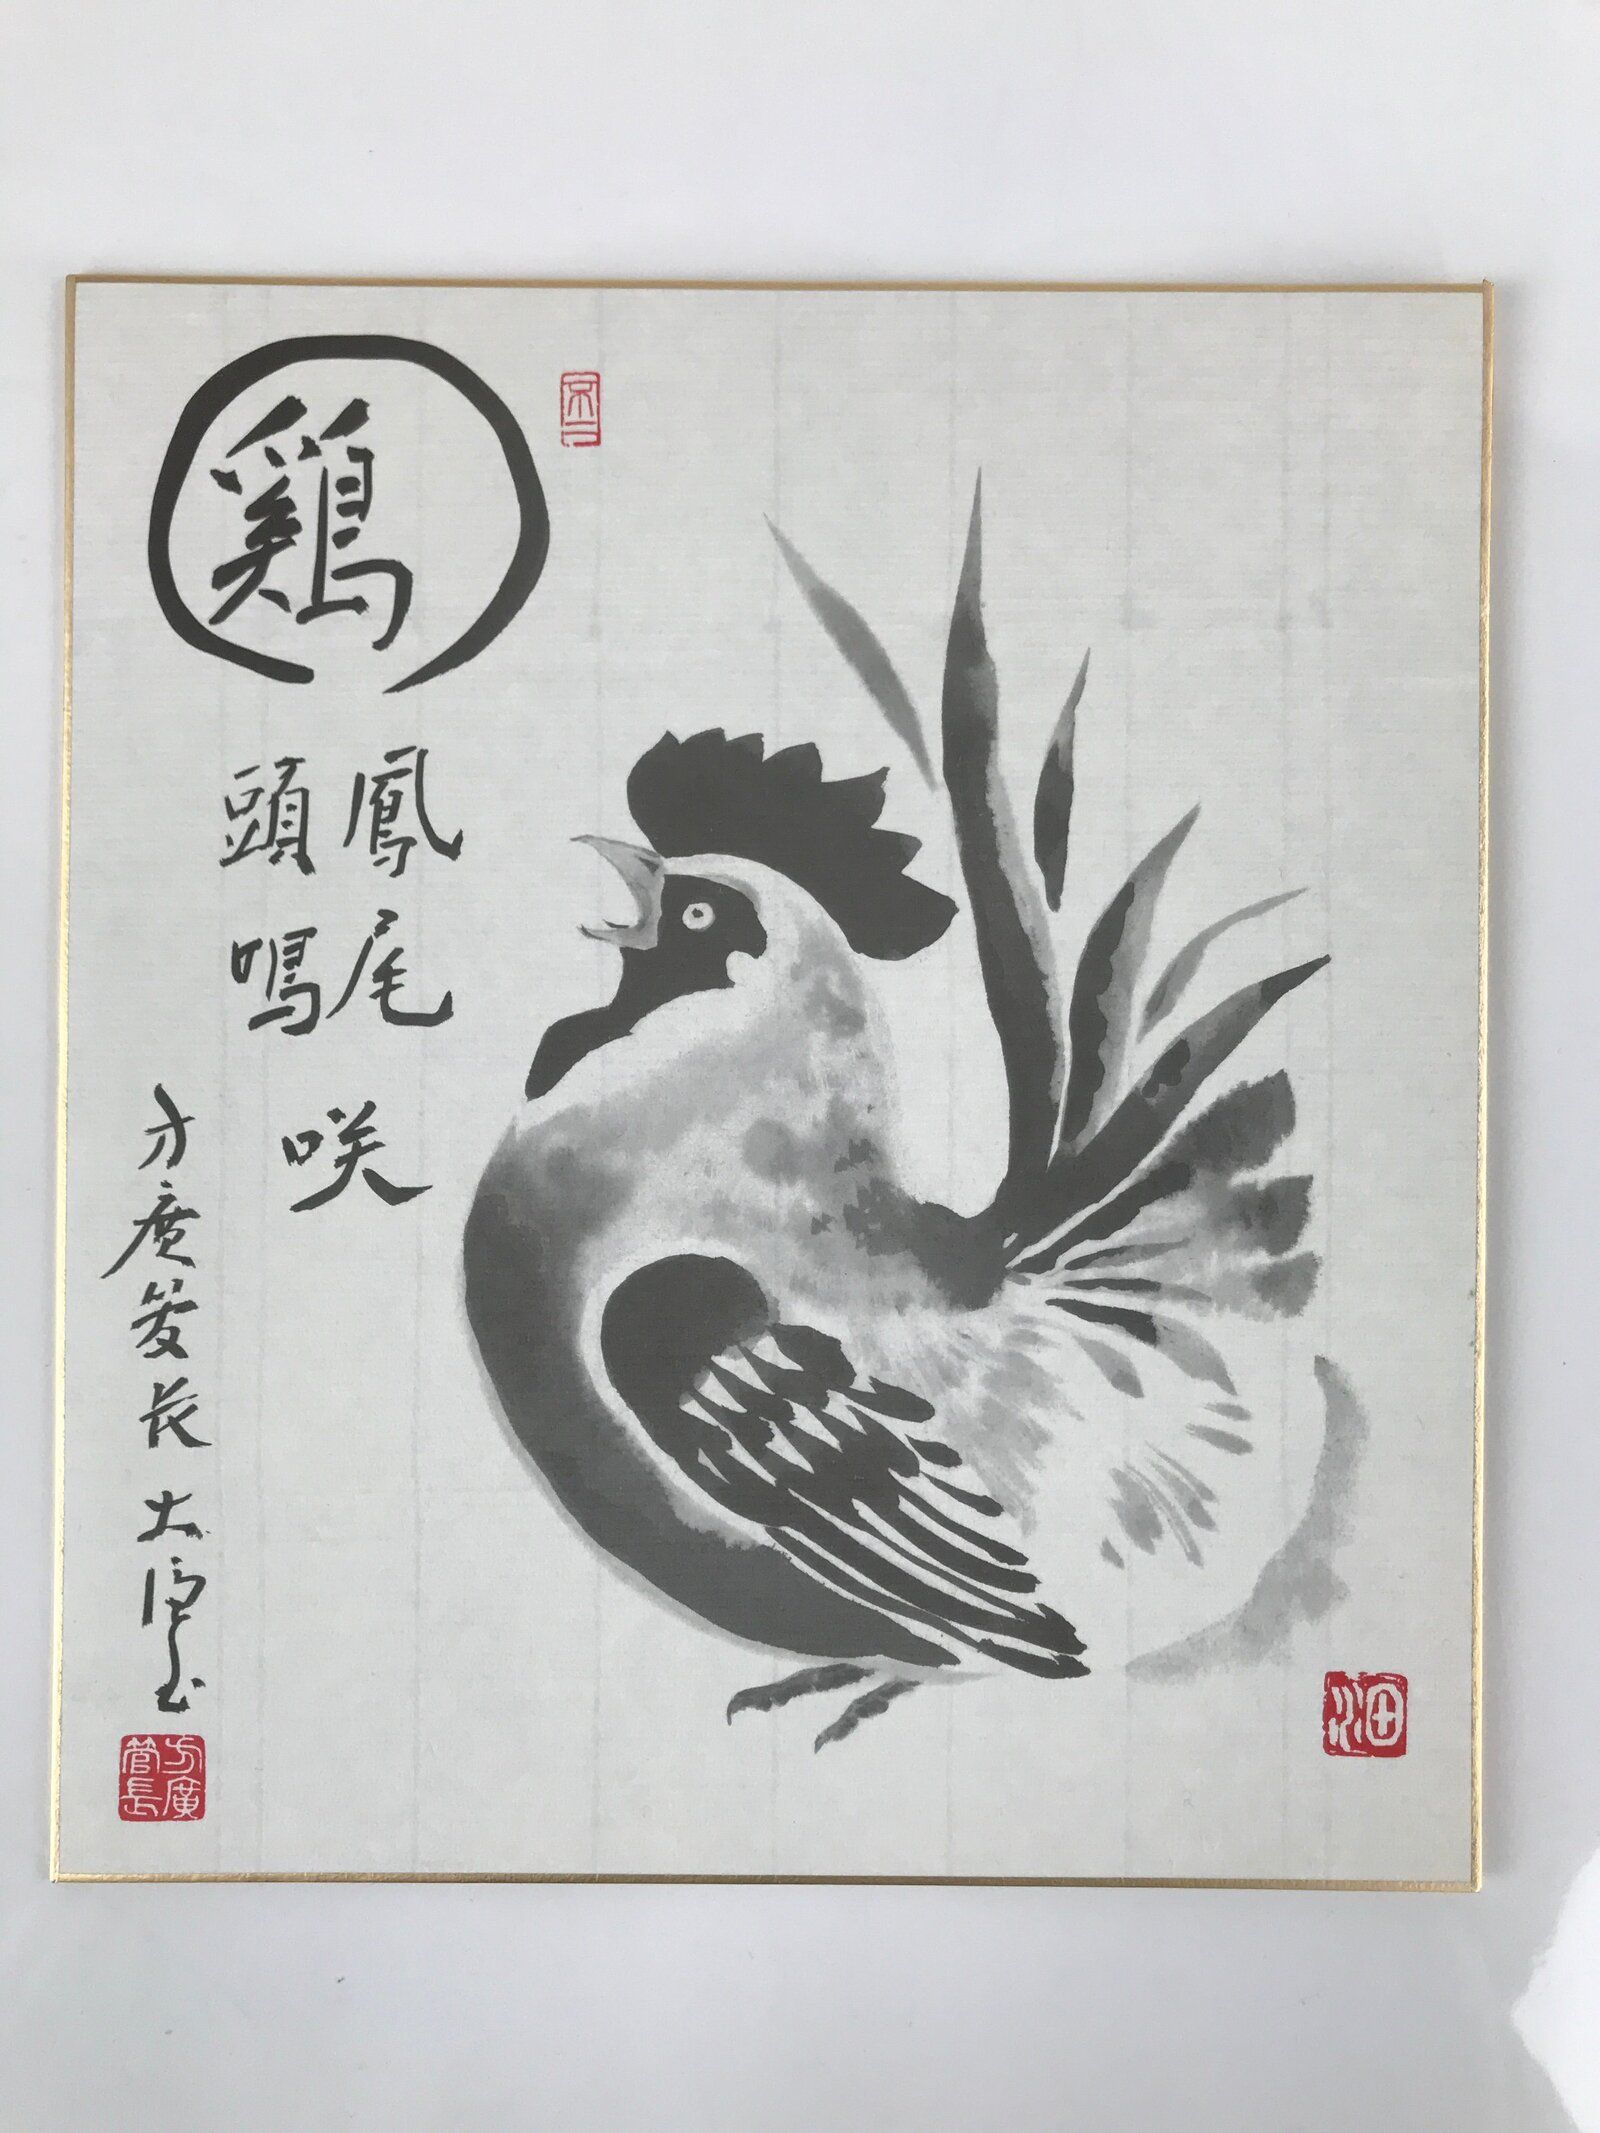 鶏
鳳尾
頭鳴
咲
方廣管長
方廣
管長